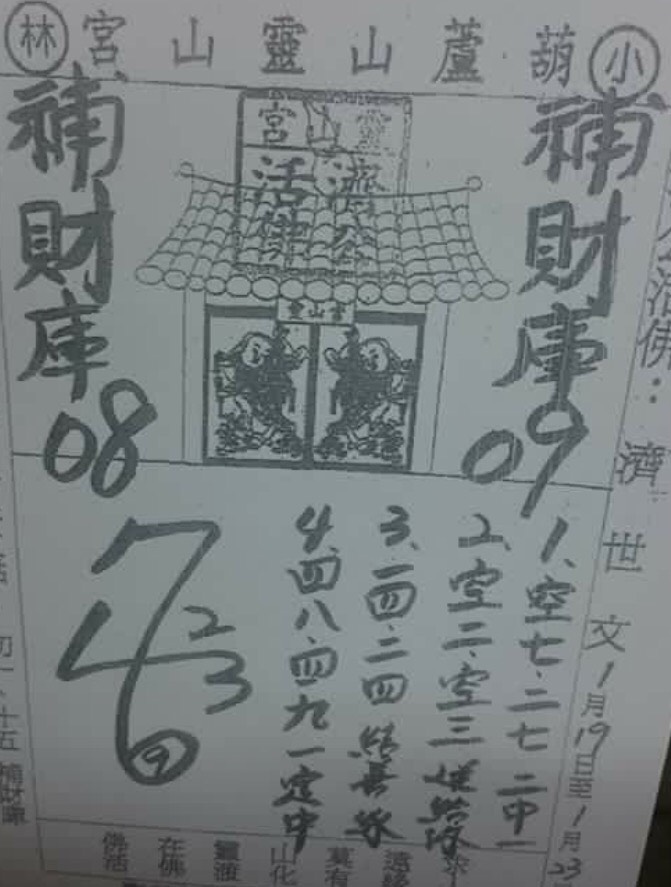 小 葫蘆山靈山宮 林
補財庫
09
補財庫
08
靈山宮
濟公
活佛
靈山宮
活佛:
濟世文
1月19日至1月23
1、空七.二七 二中一
2、空二.空三
3、一四.二四 結善緣
4、四八.四九一定中
7
4
6
2
3
初一、十五 補財庫
山化
靈濟
在佛
佛活